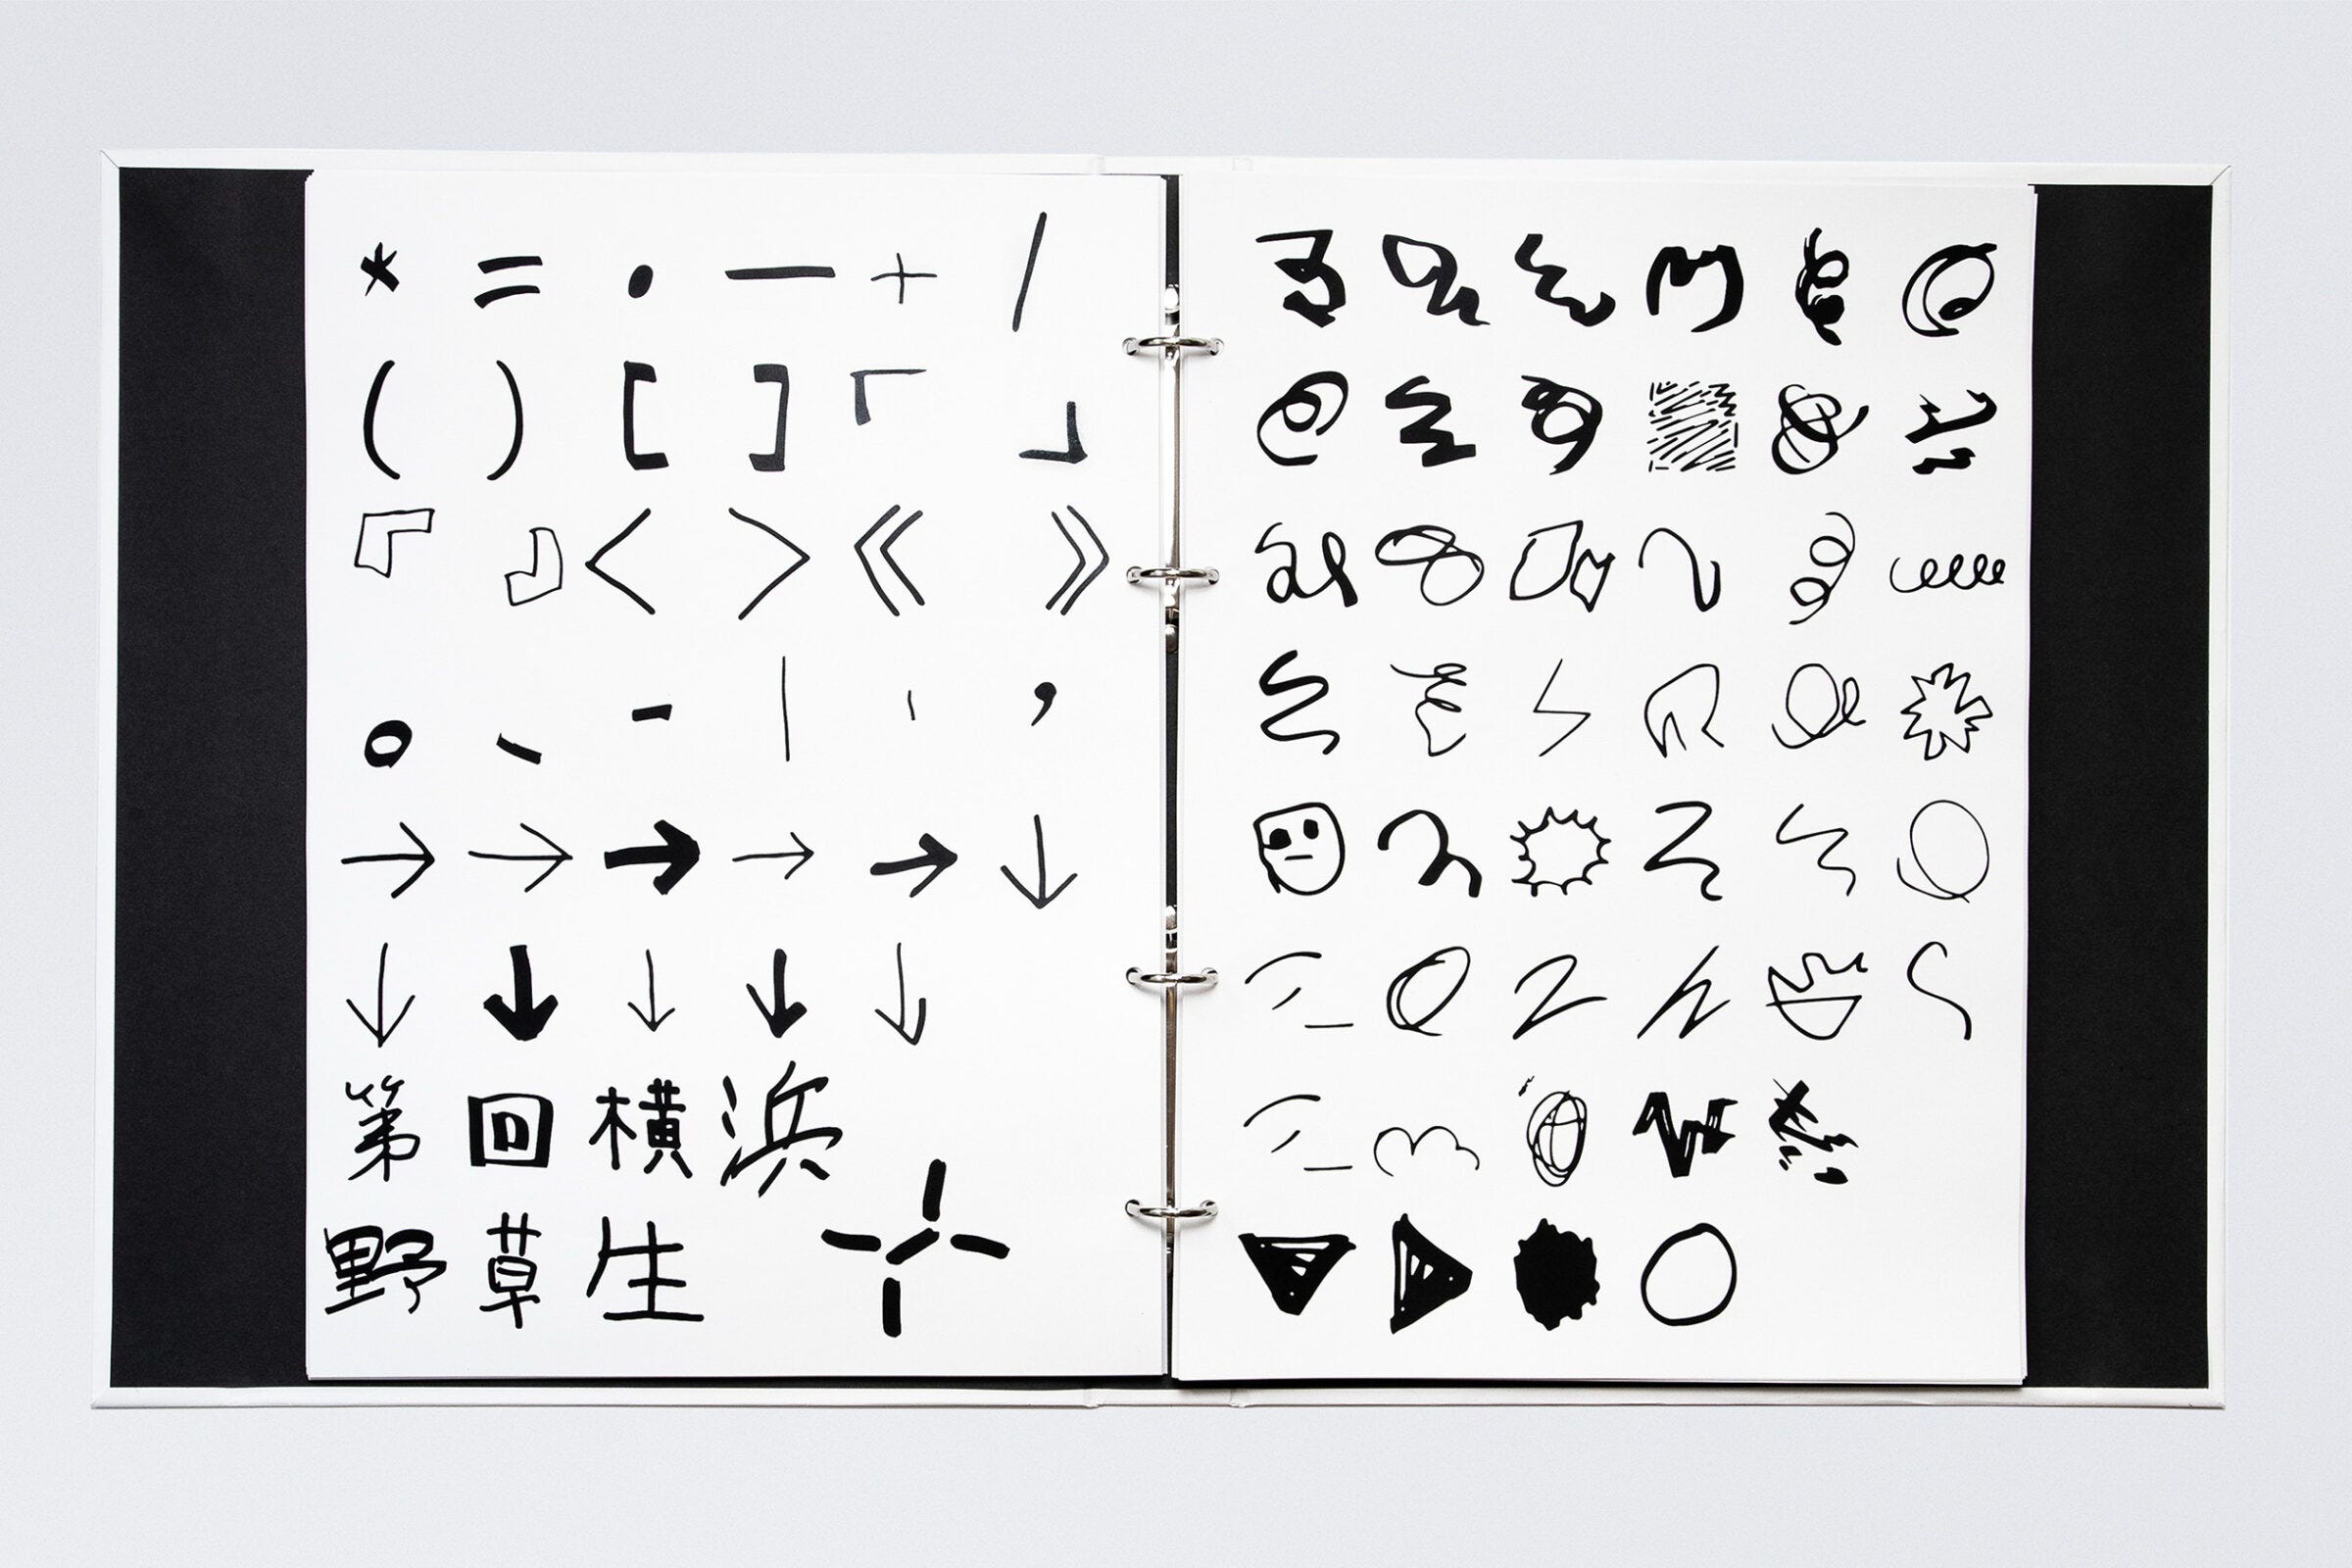 * = ・ — + /
( ) [ ] 「 」
『 』 < > 《 》
。 、 - | ' ,
→ → → → → ↓
↓ ↓ ↓ ↓ ↓
第 回 横 浜
野 草 生